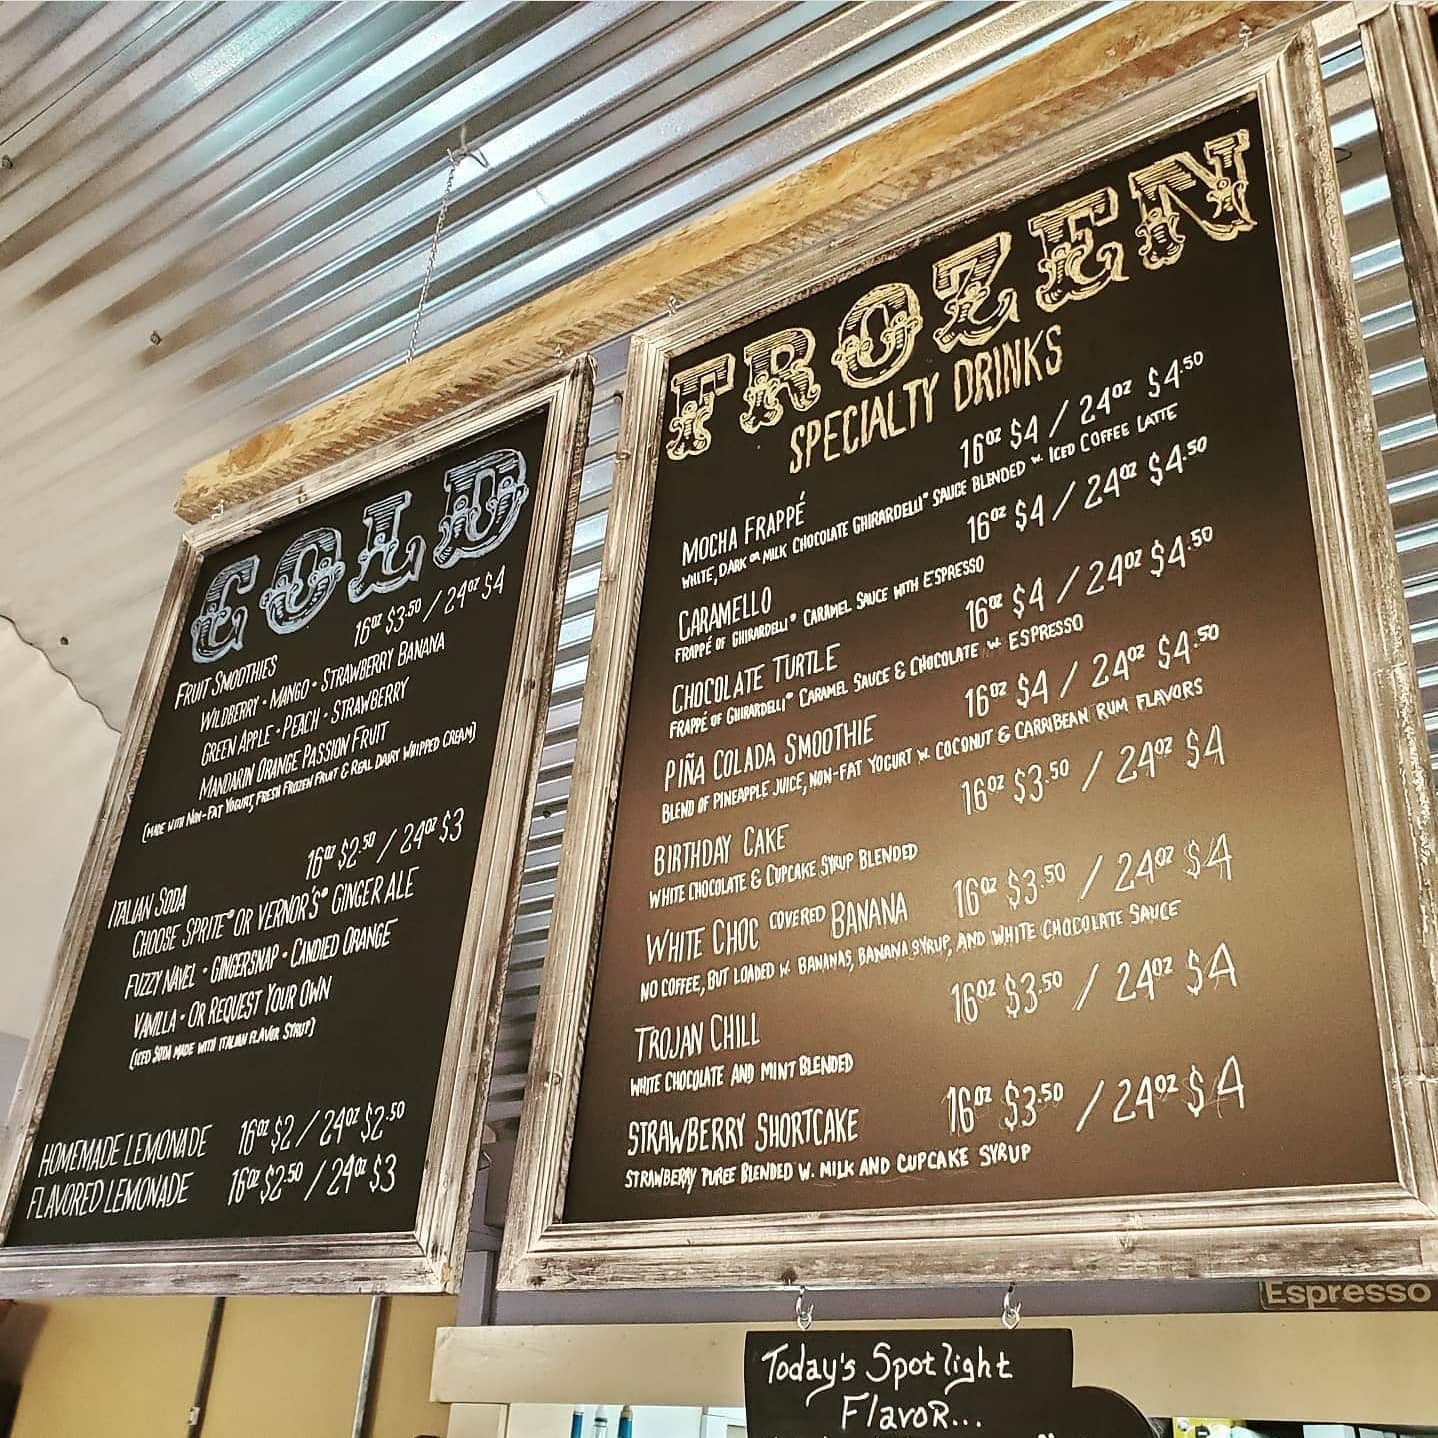 COLD
16oz $3.50 / 24oz $4
FRUIT SMOOTHIES
WILDBERRY • MANGO • STRAWBERRY BANANA
GREEN APPLE • PEACH • STRAWBERRY
MANDARIN ORANGE PASSION FRUIT
(MADE WITH NON-FAT YOGURT, FRESH FROZEN FRUIT & REAL DAIRY WHIPPED CREAM)
16oz $2.50 / 24oz $3
ITALIAN SODA
CHOOSE SPRITE® OR VERNOR'S® GINGER ALE
FUZZY NAVEL • GINGERSNAP • CANDIED ORANGE
VANILLA • OR REQUEST YOUR OWN
(ICED SODA MADE WITH ITALIAN FLAVOR SYRUP)
HOMEMADE LEMONADE 16oz $2 / 24oz $2.50
FLAVORED LEMONADE 16oz $2.50 / 24oz $3
FROZEN
SPECIALTY DRINKS
16oz $4 / 24oz $4.50
MOCHA FRAPPÉ
WHITE, DARK OR MILK CHOCOLATE GHIRARDELLI® SAUCE BLENDED W. ICED COFFEE LATTE
16oz $4 / 24oz $4.50
CARAMELLO
FRAPPÉ OF GHIRARDELLI® CARAMEL SAUCE WITH ESPRESSO
16oz $4 / 24oz $4.50
CHOCOLATE TURTLE
FRAPPÉ OF GHIRARDELLI® CARAMEL SAUCE & CHOCOLATE W. ESPRESSO
16oz $4 / 24oz $4.50
PIÑA COLADA SMOOTHIE
BLEND OF PINEAPPLE JUICE, NON-FAT YOGURT W. COCONUT & CARRIBEAN RUM FLAVORS
16oz $3.50 / 24oz $4
BIRTHDAY CAKE
WHITE CHOCOLATE & CUPCAKE SYRUP BLENDED
WHITE CHOC COVERED BANANA 16oz $3.50 / 24oz $4
NO COFFEE, BUT LOADED W. BANANAS, BANANA SYRUP, AND WHITE CHOCOLATE SAUCE
16oz $3.50 / 24oz $4
TROJAN CHILL
WHITE CHOCOLATE AND MINT BLENDED
STRAWBERRY SHORTCAKE 16oz $3.50 / 24oz $4
STRAWBERRY PUREE BLENDED W. MILK AND CUPCAKE SYRUP
Espresso
Today's Spotlight
Flavor...